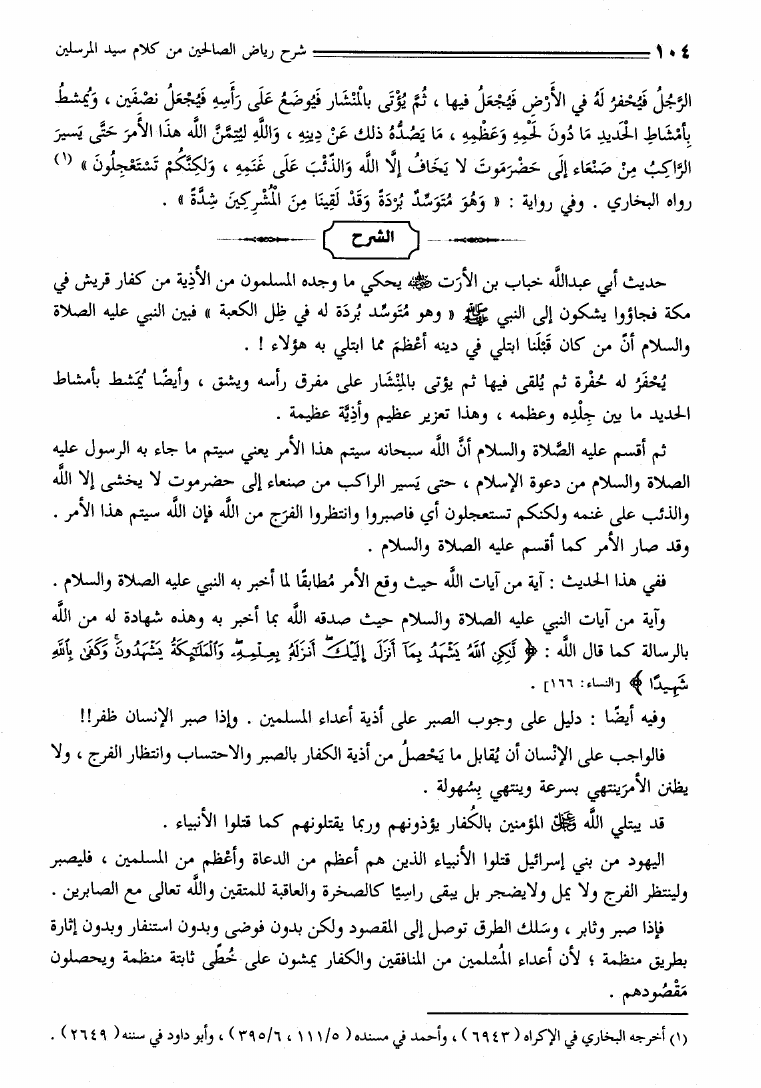 ١٠٤ شرح رياض الصالحين من كلام سيد المرسلين
الرَّجُلُ فَيُحْفَرُ لَهُ في الأَرْضِ فَيُجْعَلُ فيها ، ثُمَّ يُؤْتَى بالْمِنْشَار فَيُوضَعُ عَلَى رَأْسِهِ فَيُجْعَلُ نصْفَين ، وَيُمشطُ
بِأَمْشَاطِ الْحَديدِ مَا دُونَ لَحْمِهِ وَعَظْمِهِ ، مَا يَصُدُّهُ ذلك عَنْ دِينِهِ ، وَاللَّهِ ليُتِمَّنَّ اللَّه هذا الأَمرَ حَتَّى يَسيرَ
الرَّاكِبُ مِنْ صَنْعَاء إلَى حَضْرمَوتَ لا يَخَافُ إلَّا اللَّه وَالذِّئْبَ عَلَى غَنَمِهِ ، وَلكِنَّكُمْ تَسْتَعْجِلُونَ » (١)
رواه البخاري . وفي رواية : « وَهُوَ مُتَوَسِّدٌ بُرْدَةً وَقَدْ لَقِينَا مِنَ الْمُشْرِكِينَ شِدَّةً » .
الشرح
حديث أبي عبداللَّه خباب بن الأرَت ﵁ يحكي ما وجده المسلمون من الأذِية من كفار قريش في
مكة فجاؤوا يشكون إلى النبي ﷺ « وهو مُتَوسِّد بُردَة له في ظِل الكعبة » فبين النبي عليه الصلاة
والسلام أنّ من كان قَبْلَنا ابتلي في دينه أعْظمَ مما ابتلي به هؤلاء ! .
يُحْفَرُ له حُفْرة ثم يُلقى فيها ثم يؤتى بالمِنْشَار على مفرق رأسه ويشق ، وأيضًا يُمَشط بأمشاط
الحديد ما بين جِلْدِه وعظمه ، وهذا تعزير عظيم وأذِيَّة عظيمة .
ثم أقسم عليه الصَّلاة والسلام أنَّ اللَّه سبحانه سيتم هذا الأمر يعني سيتم ما جاء به الرسول عليه
الصلاة والسلام من دعوة الإسلام ، حتى يَسير الراكب من صنعاء إلى حضرموت لا يخشى إلا اللَّه
والذئب على غنمه ولكنكم تستعجلون أي فاصبروا وانتظروا الفرَج من اللَّه فإن اللَّه سيتم هذا الأمر .
وقد صار الأمر كما أقسم عليه الصلاة والسلام .
ففي هذا الحديث : آية من آيات اللَّه حيث وقع الأمر مُطابقًا لما أخبر به النبي عليه الصلاة والسلام .
وآية من آيات النبي عليه الصلاة والسلام حيث صدقه اللَّه بما أخبر به وهذه شهادة له من اللَّه
بالرسالة كما قال اللَّه : ﴿ لَّٰكِنِ ٱللَّهُ يَشْهَدُ بِمَآ أَنزَلَ إِلَيْكَۖ أَنزَلَهُۥ بِعِلْمِهِۦۖ وَٱلْمَلَٰٓئِكَةُ يَشْهَدُونَۚ وَكَفَىٰ بِٱللَّهِ
شَهِيدًا ﴾ [النساء: ١٦٦] .
وفيه أيضًا : دليل على وجوب الصبر على أذية أعداء المسلمين . وإذا صبر الإنسان ظفر!!
فالواجب على الإنْسان أن يُقابل ما يَحْصلُ من أذية الكفار بالصبر والاحتساب وانتظار الفرج ، ولا
يظنن الأمرَينتهي بسرعة وينتهي بِسُهولة .
قد يبتلي اللَّه ﷿ المؤمنين بالكُفار يؤذونهم وربما يقتلونهم كما قتلوا الأنبياء .
اليهود من بني إسرائيل قتلوا الأنبياء الذين هم أعظم من الدعاة وأعْظم من المسلمين ، فليصبر
ولينتظر الفرج ولا يمل ولايضجر بل يبقى راسِيًا كالصخرة والعاقبة للمتقين واللَّه تعالى مع الصابرين .
فإذا صبر وثابر ، وسَلك الطرق توصل إلى المقصود ولكن بدون فوضى وبدون استنفار وبدون إثارة
بطريق منظمة ؛ لأن أعداء المُسْلمين من المنافقين والكفار يمشون على خُطًى ثابتة منظمة ويحصلون
مَقْصُودهم .
(١) أخرجه البخاري في الإكراه ( ٦٩٤٣ ) ، وأحمد في مسنده ( ١١١/٥ ، ٣٩٥/٦ ) ، وأبو داود في سننه ( ٢٦٤٩ ) .